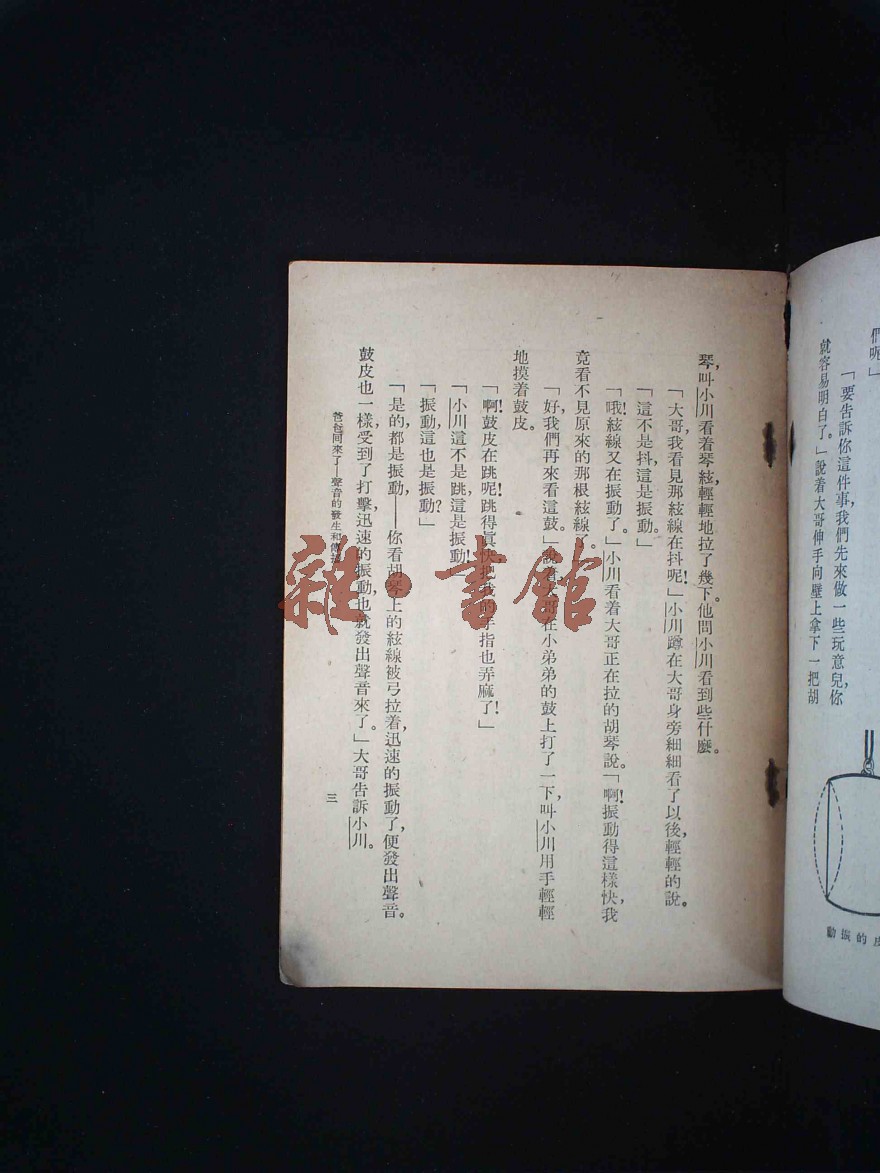 們呢」
「要告訴你這件事，我們先來做一些玩意兒，你
就容易明白了。」說着大哥伸手向壁上拿下一把胡
動振的皮
琴，叫小川看着琴絃，輕輕地拉了幾下。他問小川看到些什麼。
「大哥，我看見那絃線在抖呢！」小川蹲在大哥身旁細細看了以後，輕輕的說。
「這不是抖，這是振動。」
「哦！絃線又在振動了。」小川看着大哥正在拉的胡琴說。「啊！振動得這樣快，我
竟看不見原來的那根絃線了。
「好，我們再來看這鼓。」說着大哥在小弟弟的鼓上打了一下，叫小川用手輕輕
地摸着鼓皮。
「啊！鼓皮在跳呢！跳得眞快，把我的手指也弄麻了！」
「小川，這不是跳，這是振動！」
「振動，這也是振動？」
「是的，都是振動，——你看胡琴上的絃線被弓拉着，迅速的振動了，便發出聲音。
鼓皮也一樣受到了打擊，迅速的振動，也就發出聲音來了。」大哥告訴小川。
爸爸回來了—聲音的發生和傳
三
雜·書館